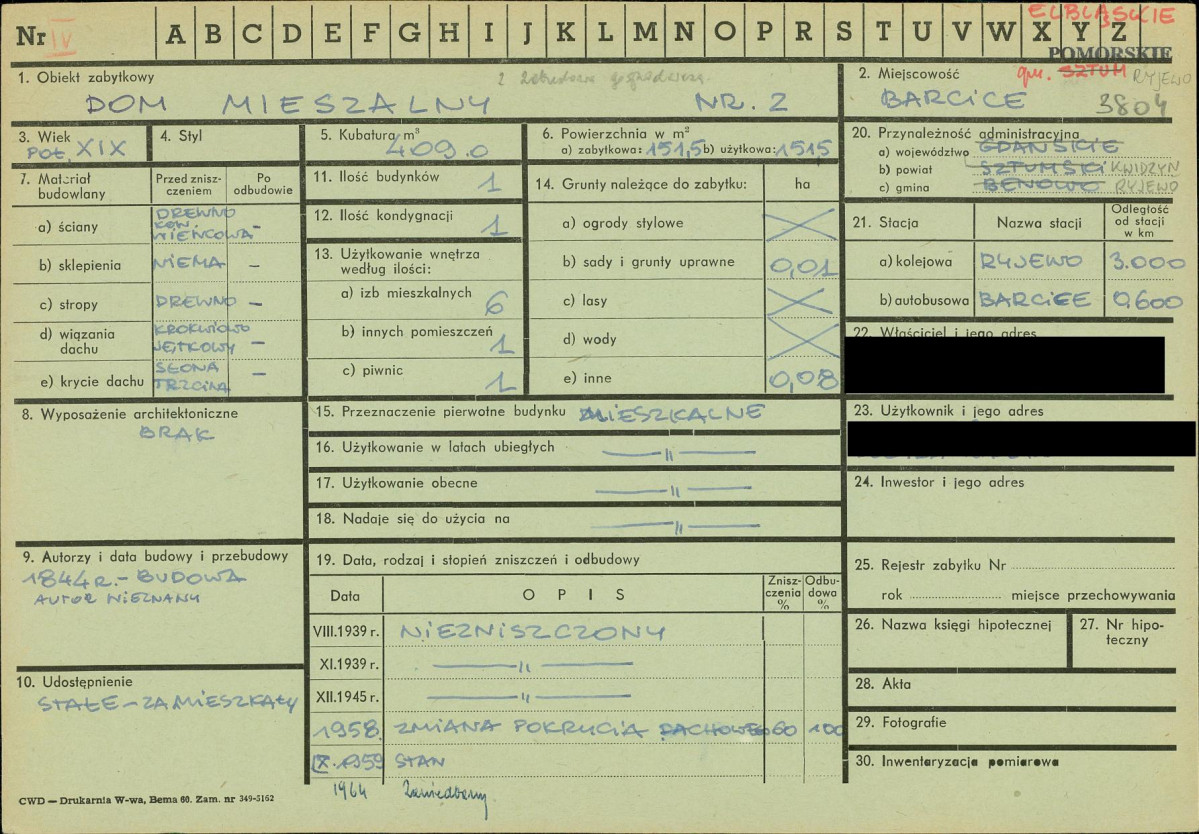 Nr IV A B C D E F G H I J K L M N O P R S T U V W X Y Z
ELBLĄSKIE
POMORSKIE
1. Obiekt zabytkowy
DOM MIESZALNY NR. 2
2. Miejscowość gm. SZTUM RYJEWO
BARCICE 3804
3. Wiek
POŁ. XIX
4. Styl
5. Kubatura m³
409.0
6. Powierzchnia w m²
a) zabytkowa: 151,5 b) użytkowa: 1515
7. Materiał budowlany
Przed zniszczeniem
Po odbudowie
a) ściany DREWNO KON. WIEŃCOWA –
b) sklepienia NIEMA –
c) stropy DREWNO –
d) wiązania dachu KROKWIOWO JĘTKOWY –
e) krycie dachu SŁOMA TRZCINA –
8. Wyposażenie architektoniczne
BRAK
9. Autorzy i data budowy i przebudowy
1844 r. – BUDOWA
AUTOR NIEZNANY
10. Udostępnienie
STAŁE – ZAMIESZKAŁY
CWD — Drukarnia W-wa, Bema 60. Zam. nr 349-5162
11. Ilość budynków 1
12. Ilość kondygnacji 1
13. Użytkowanie wnętrza według ilości:
a) izb mieszkalnych 6
b) innych pomieszczeń 1
c) piwnic 1
14. Grunty należące do zabytku: ha
a) ogrody stylowe
b) sady i grunty uprawne 0,01
c) lasy
d) wody
e) inne 0,08
15. Przeznaczenie pierwotne budynku MIESZKALNE
16. Użytkowanie w latach ubiegłych —— " ——
17. Użytkowanie obecne —— " ——
18. Nadaje się do użycia na —— " ——
19. Data, rodzaj i stopień zniszczeń i odbudowy
Data OPIS Zniszczenia % Odbudowa %
VIII.1939 r. NIEZNISZCZONY
XI.1939 r. —— " ——
XII.1945 r. —— " ——
1958. ZMIANA POKRYCIA DACHOWEGO 60 100
IX.1959 STAN
1964 Zaniedbany
20. Przynależność administracyjna
a) województwo GDAŃSKIE
b) powiat SZTUMSKI KWIDZYN
c) gmina BENOWO RYJEWO
21. Stacja Nazwa stacji Odległość od stacji w km
a) kolejowa RYJEWO 3.000
b) autobusowa BARCICE 0.600
22. Właściciel i jego adres
23. Użytkownik i jego adres
24. Inwestor i jego adres
25. Rejestr zabytku Nr
rok miejsce przechowywania
26. Nazwa księgi hipotecznej
27. Nr hipoteczny
28. Akta
29. Fotografie
30. Inwentaryzacja pomiarowa